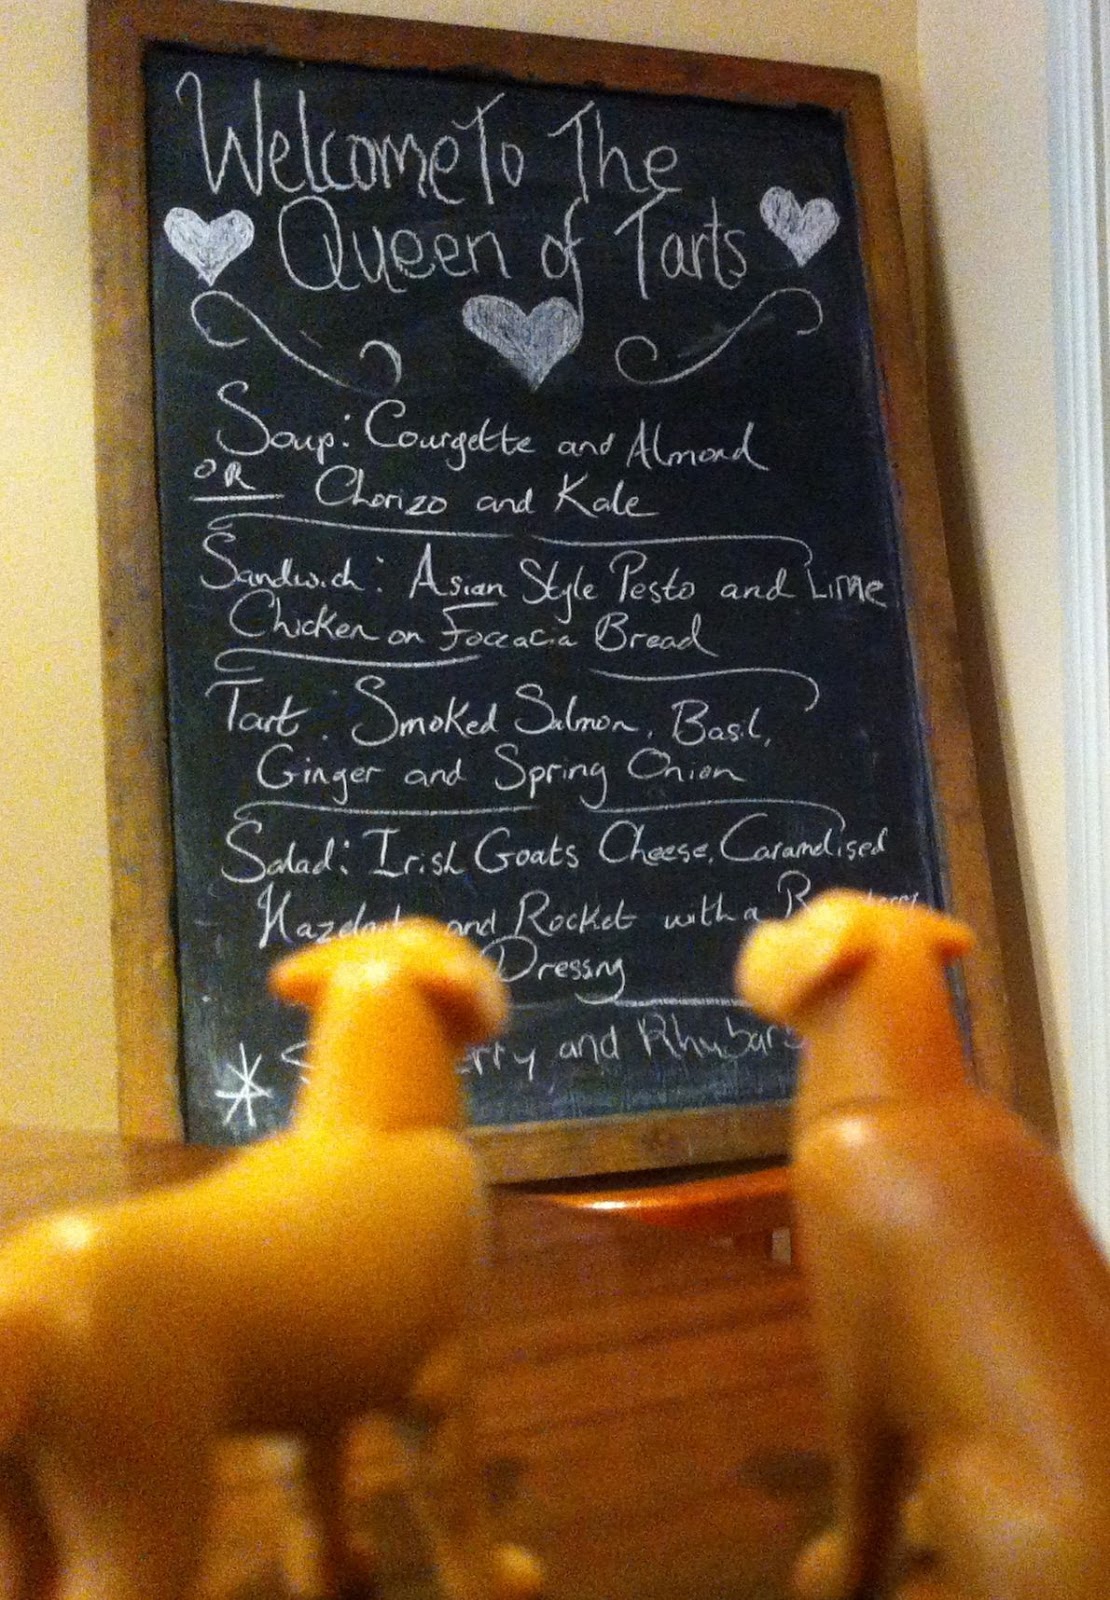 Welcome To The
Queen of Tarts
Soup: Courgette and Almond
OR Chorizo and Kale
Sandwich: Asian Style Pesto and Lime
Chicken on Foccacia Bread
Tart: Smoked Salmon, Basil,
Ginger and Spring Onion
Salad: Irish Goats Cheese, Caramelised
and Rocket with a
Dressing
* and Rhubarb